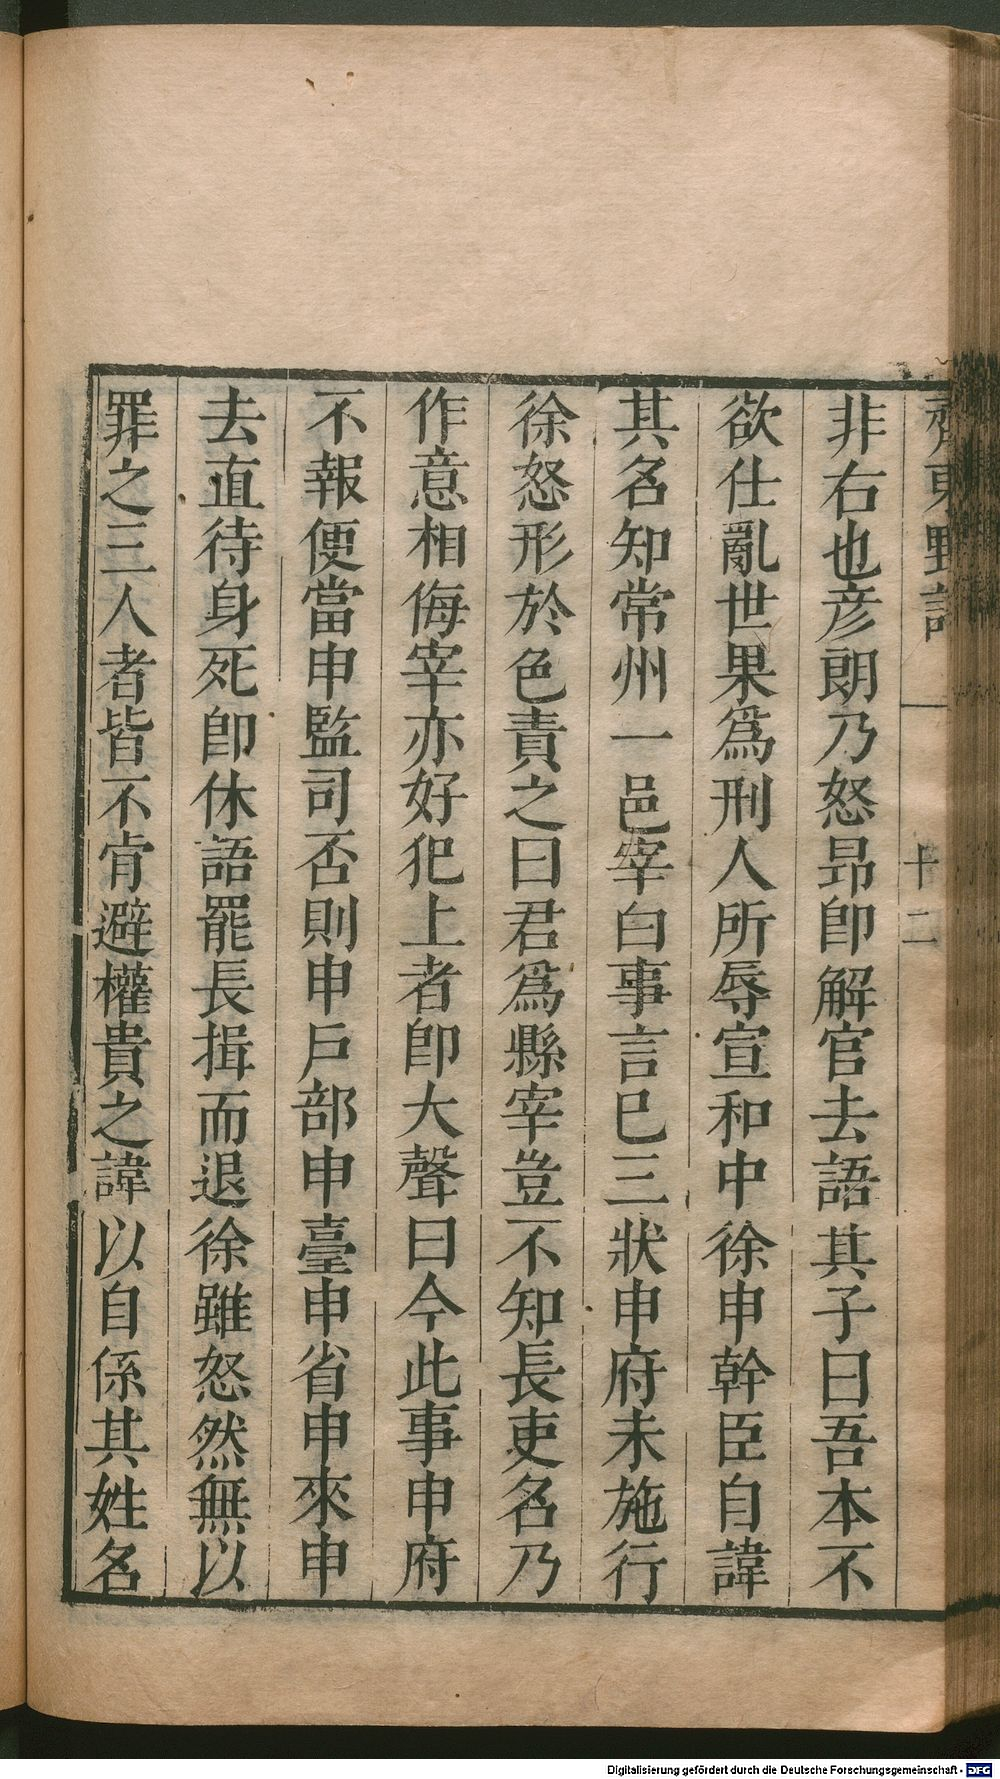 齊東野語
十二
非右也彦朗乃怒昻卽解官去語其子曰吾本不
欲仕亂世果爲刑人所辱宣和中徐申幹臣自諱
其名知常州一邑宰白事言已三狀申府未施行
徐怒形於色責之曰君爲縣宰豈不知長吏名乃
作意相侮宰亦好犯上者卽大聲曰今此事申府
不報便當申監司否則申戶部申臺申省申來申
去直待身死卽休語罷長揖而退徐雖怒然無以
罪之三人者皆不肯避權貴之諱以自係其姓名
Digitalisierung gefördert durch die Deutsche Forschungsgemeinschaft - DFG